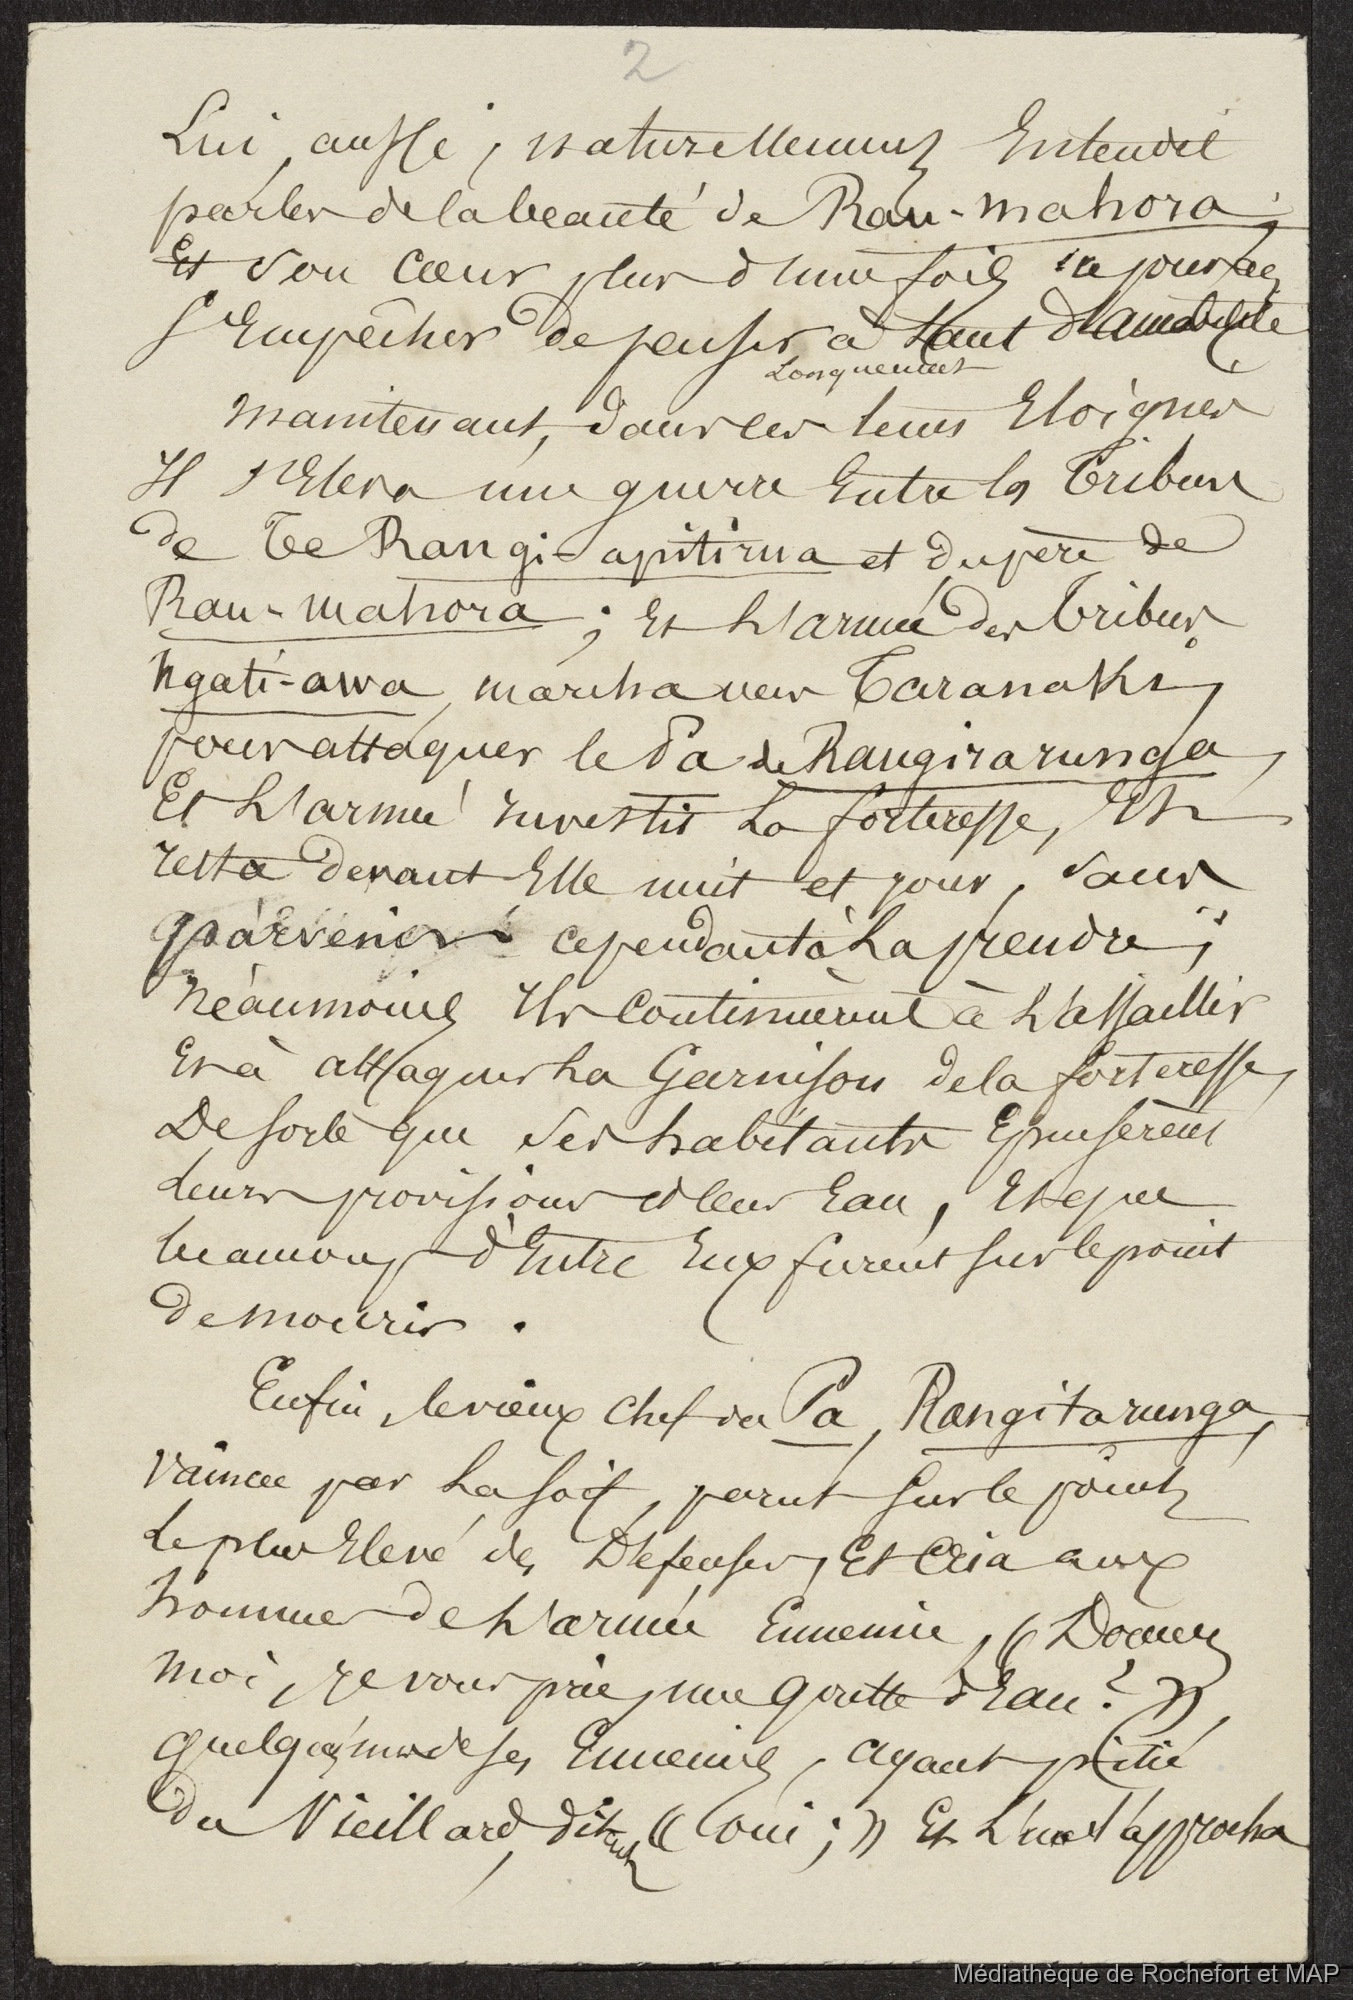 2
Lui, aussi, naturellement Entendit
parler de la beauté de Rau-mahora;
Et son cœur plus d'une fois ne pouvait
s'Empêcher de penser à tant d'amabilité
Longuement
Maintenant, dans les tems Eloignés
Il s'Eleva une guerre Entre les Tribus
de Te Rangi-apitirua et du père de
Rau-mahora; Et L'armée des Tribus
Ngati-awa, marcha vers Taranaki,
pour attaquer le Pa de Rangirarunga,
Et L'armée investit La forteresse, Et
resta devant Elle nuit et jour, sans
parvenir cependant à La prendre;
Néaumoins Ils continuèrent à L'assaillir
Et à attaquer La Garnison de la forteresse,
De sorte que ses habitants Epuisèrent
leurs provisions et leur Eau, Et que
beaucoup d'Entre Eux furent sur le point
de mourir.
Enfin, le vieux chef du Pa, Rangitarunga,
Vaincu par La soif, parut sur le point
Le plus Elevé des Défenses, Et Cria aux
hommes de L'armée Ennemie, « Donnez
moi, je vous prie, une goutte d'Eau? »,
quelques uns de ses Ennemis, ayant pitié
du Vieillard, disent « Oui; » Et L'un s'approcha
Médiathèque de Rochefort et MAP